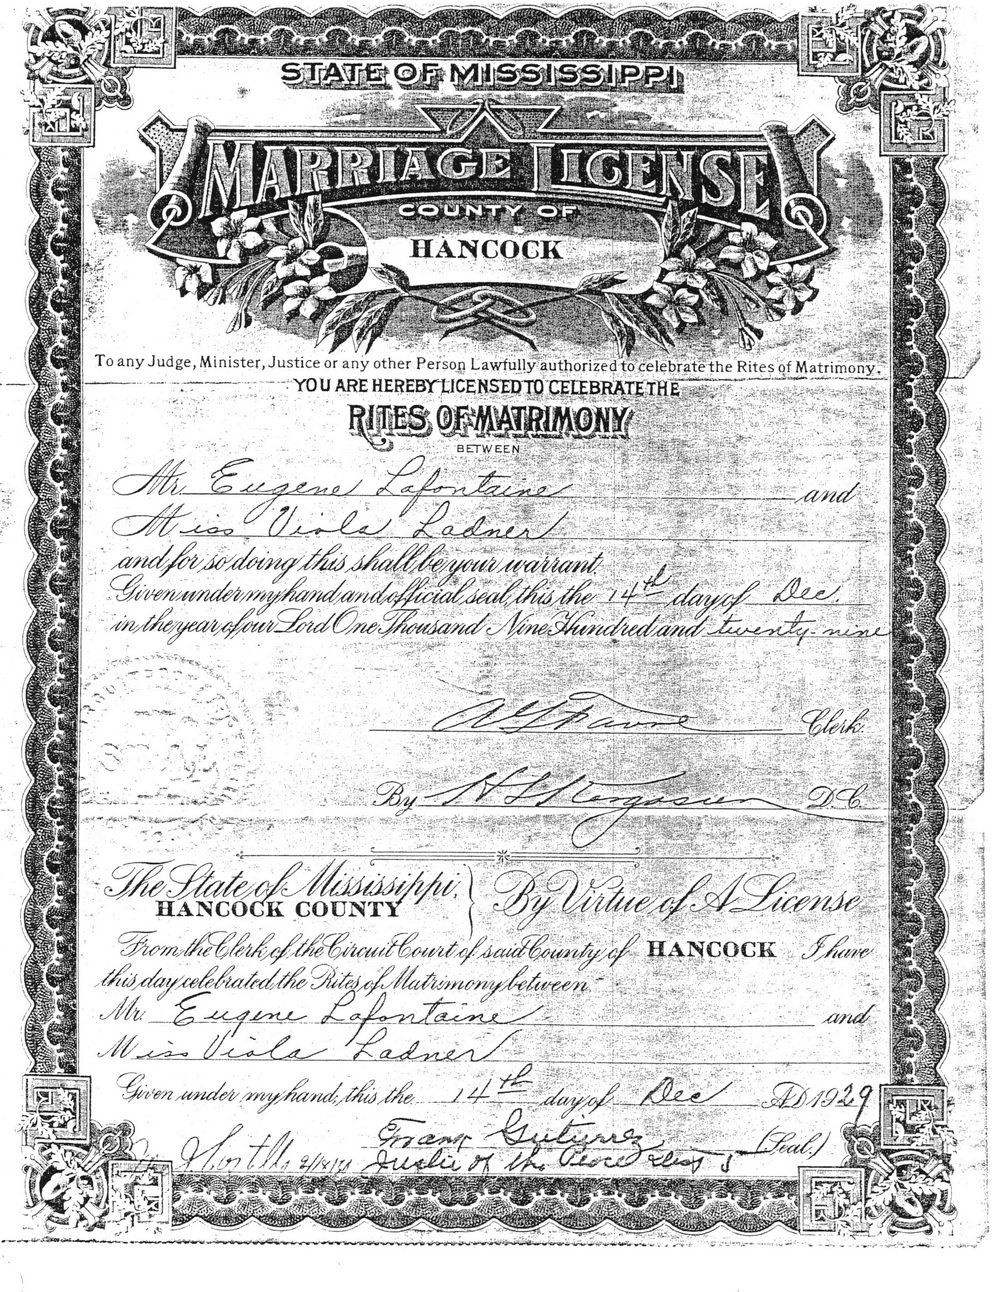 STATE OF MISSISSIPPI
MARRIAGE LICENSE
COUNTY OF
HANCOCK
To any Judge, Minister, Justice or any other Person Lawfully authorized to celebrate the Rites of Matrimony.
YOU ARE HEREBY LICENSED TO CELEBRATE THE
RITES OF MATRIMONY
BETWEEN
Mr. Eugene Lafontaine and
Miss Viola Ladner
and for so doing this shall be your warrant
Given under my hand and official seal, this the 14th day of Dec.
in the year of our Lord One Thousand Nine Hundred and twenty-nine
A G Favre Clerk.
By H S D.C.
The State of Mississippi, } By Virtue of A License
HANCOCK COUNTY
From the Clerk of the Circuit Court of said County of HANCOCK I have
this day celebrated the Rites of Matrimony between
Mr. Eugene Lafontaine and
Miss Viola Ladner
Given under my hand, this the 14th day of Dec AD 1929
Frank Gutierrez (Seal.)
Justic of the Peace Dist 5